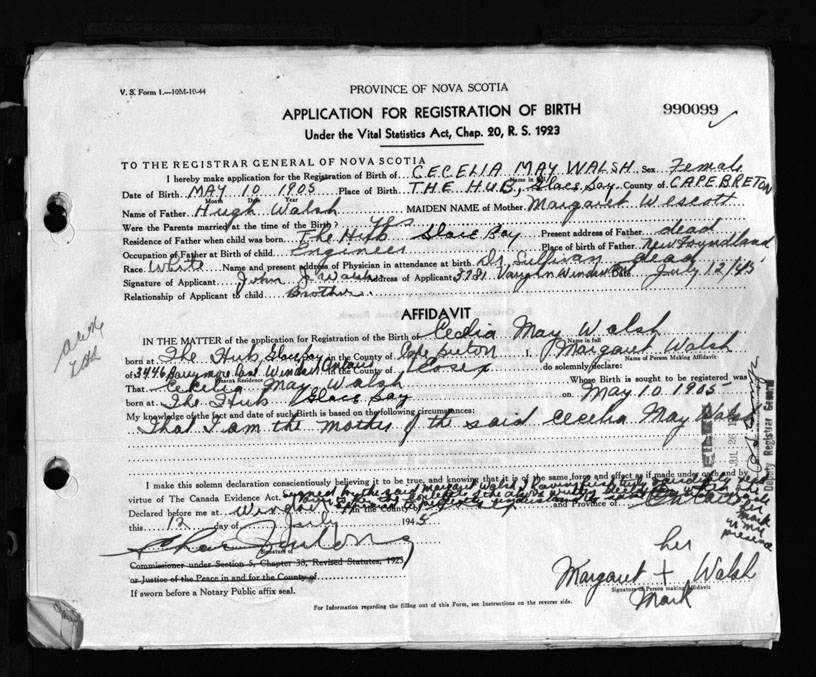 V. S. Form 1.—10M-10-44
PROVINCE OF NOVA SCOTIA
APPLICATION FOR REGISTRATION OF BIRTH
990099
Under the Vital Statistics Act, Chap. 20, R. S. 1923
TO THE REGISTRAR GENERAL OF NOVA SCOTIA
I hereby make application for the Registration of Birth of CECELIA MAY WALSH Sex Female
Name in full
Date of Birth MAY 10 1905 Place of Birth THE HUB, Glace Bay. County of CAPE BRETON
Month Date Year
Name of Father Hugh Walsh MAIDEN NAME of Mother Margaret Wescott
Were the Parents married at the time of Birth? Yes
Residence of Father when child was born The Hub Glace Bay Present address of Father dead
Occupation of Father at Birth of child Engineer Place of birth of Father Newfoundland
Race White Name and present address of Physician in attendance at birth Dr Sullivan dead
Signature of Applicant John J Walsh Address of Applicant 3781 Vaughn Windsor Date July 12/45
Relationship of Applicant to child Brother.
AFFIDAVIT
IN THE MATTER of the application for Registration of the Birth of Cecelia May Walsh
Name in full
born at The Hub, Glace Bay in the County of Cape Breton I, Margaret Walsh
Name of Person Making Affidavit
of 3446 Barrymore Windsor Ontario in the County of Essex do solemnly declare:
Present Residence
That Cecelia May Walsh Whose Birth is sought to be registered was
born at The Hub Glace Bay on May 10 1905
My knowledge of the fact and date of such Birth is based on the following circumstances:
That I am the mother of the said Cecelia May Walsh
I make this solemn declaration conscientiously believing it to be true, and knowing that it is of the same force and effect as if made under oath and by
virtue of The Canada Evidence Act. Signed by the said Margaret Walsh, having first
Declared before me at Windsor in the County of Essex and Province of Ontario
her mark in my presence
this 12 day of July 1945
Signature of
Commissioner under Section 5, Chapter 38, Revised Statutes, 1923
or Justice of the Peace in and for the County of
If sworn before a Notary Public affix seal.
her
Margaret + Walsh
Signature of Person making Affidavit
Mark
For Information regarding the filling out of this Form, see Instructions on the reverse side.
FILED
JUL 26
Deputy Registrar General